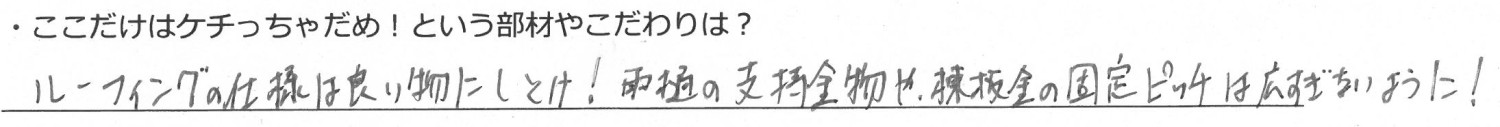 ・ここだけはケチっちゃだめ！という部材やこだわりは？
ルーフィングの仕様は良い物にしとけ！雨樋の支持金物や、棟板金の固定ピッチは広すぎないように！